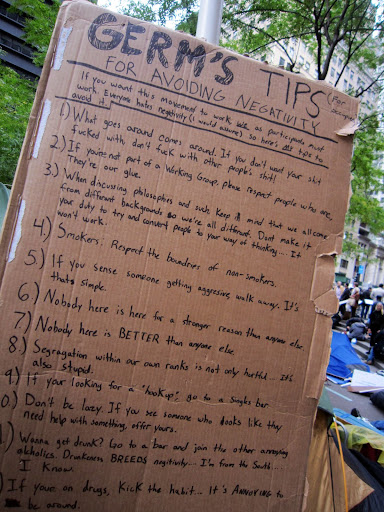 GERM'S TIPS
FOR AVOIDING NEGATIVITY
If you want this movement to work we as participants must
work. Everyone hates negativity (I would assume) so here's some tips to
avoid it.
1) What goes around comes around. If you don't want your shit
fucked with don't fuck with other people's shit!
2) If you're not part of a Working Group, please respect people who are.
They're our glue.
3) When discussing philosophies and such, keep it mind that we all come
from different backgrounds so we're all different. Dont make it
your duty to try and convert people to your way of thinking.... It
won't work.
4) Smokers: Respect the boundries of non-smokers.
5) If you sense someone getting aggresive, walk away. It's
thats simple.
6) Nobody here is here for a stronger reason than anyone else.
7) Nobody here is BETTER than anyone else.
8) Segregation within our own ranks is not only hurtful... it's
also stupid.
9) If your looking for a "hookup", go to a singles bar.
0) Don't be lazy. If you see someone who looks like they
need help with something, offer yours.
) Wanna get drunk? Go to a bar and join the other annoying
alcholics. Drunkeness BREEDS negativity... I'm from the South...
I know.
) If your on drugs, kick the habit... It's ANNOYING to
be around.